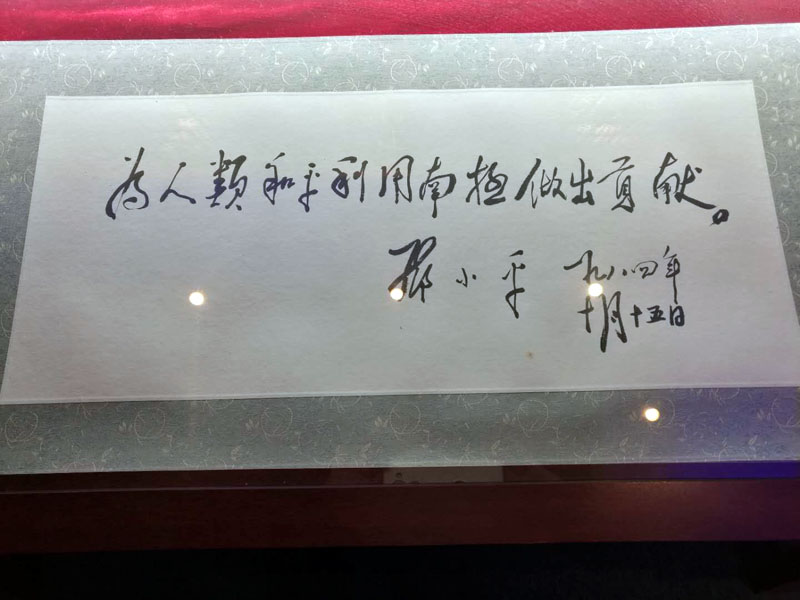 为人類和平利用南极做出貢献。
邓小平 一九八四年
十月十五日